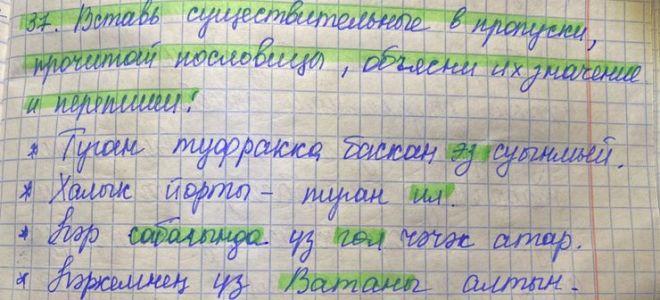 37. Вставь существительные в пропуски,
прочитай пословицы, объясни их значение
и перепиши!
* Туган туфракка баскан эз суынмый.
* Халык йорты – туган ил.
* Һәр сабагында үз гөл чәчәк атар.
* Һәркемнең үз Ватаны алтын.